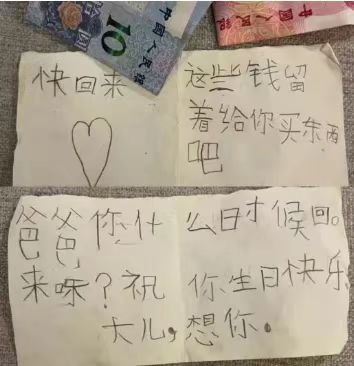 中国人民银
10
中国人民银
快回来
这些钱留
着给你买东西
吧
爸爸你什么日才候回。
来呀？祝你生日快乐
大儿，想你。